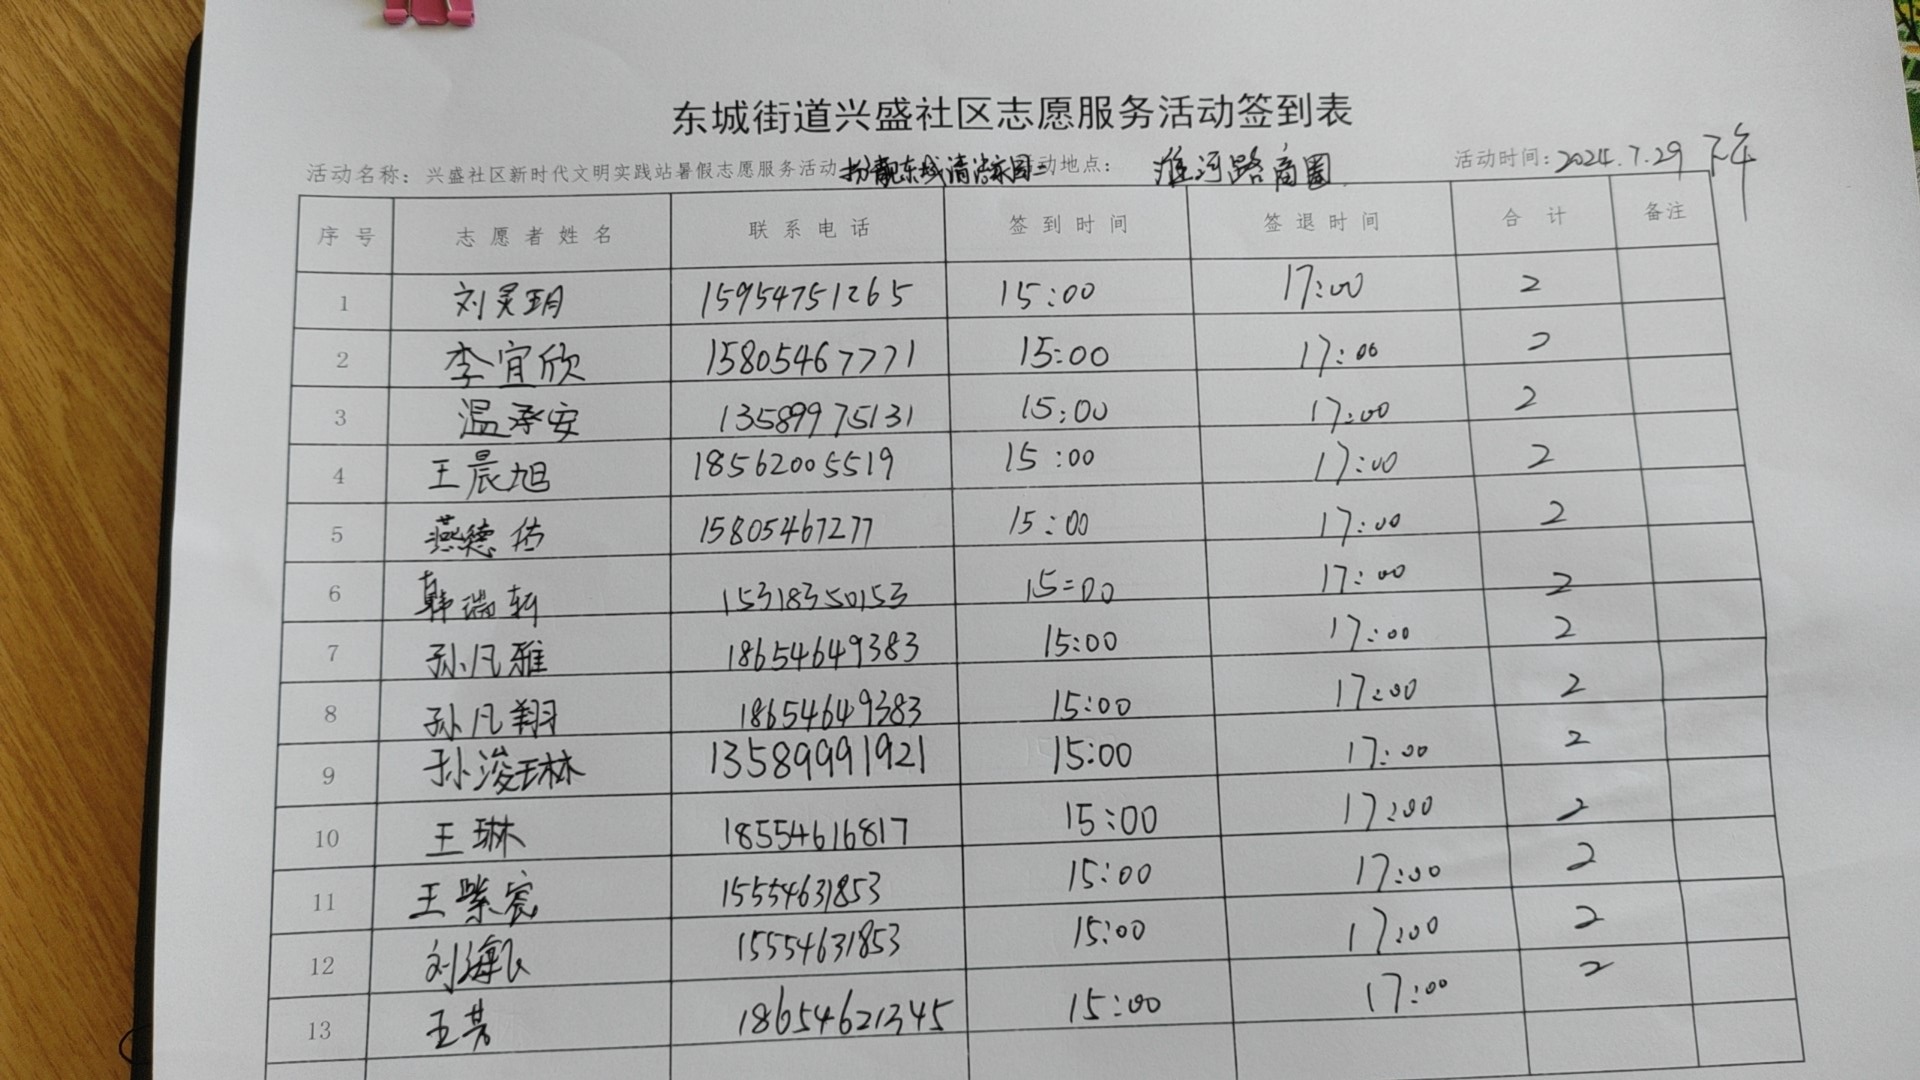 东城街道兴盛社区志愿服务活动签到表
活动名称：兴盛社区新时代文明实践站暑假志愿服务活动 扮靓东城清洁家园 动地点： 淮河路商圈 活动时间：2024.7.29 下午
序号 志愿者姓名 联系电话 签到时间 签退时间 合计 备注
1 刘灵玥 15954751265 15:00 17:00 2
2 李宜欣 15805467771 15:00 17:00 2
3 温承安 13589975131 15:00 17:00 2
4 王晨旭 18562005519 15:00 17:00 2
5 燕德佑 15805467277 15:00 17:00 2
6 韩瑞轩 15318350153 15:00 17:00 2
7 孙凡雅 18654649383 15:00 17:00 2
8 孙凡翔 18654649383 15:00 17:00 2
9 孙浚琳 13589991921 15:00 17:00 2
10 王琳 18554616817 15:00 17:00 2
11 王紫宸 15554631853 15:00 17:00 2
12 刘海 15554631853 15:00 17:00 2
13 王芳 18654621345 15:00 17:00 2